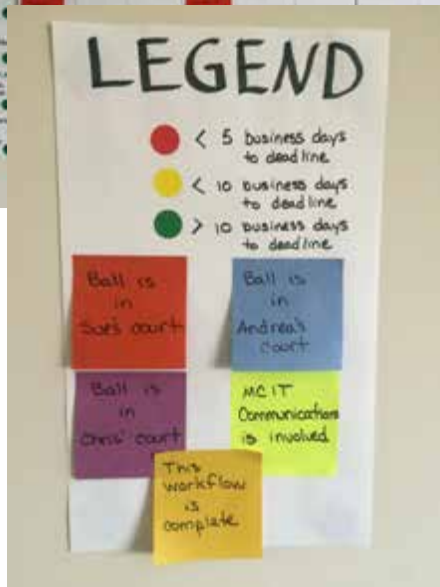 LEGEND
< 5 business days
to deadline
< 10 business days
to deadline
> 10 business days
to deadline
Ball is
in
Sue's court
Ball is
in
Andrea's
Court
Ball is
in
Chris' court
MCIT
Communications
is involved
This
workflow
is
complete